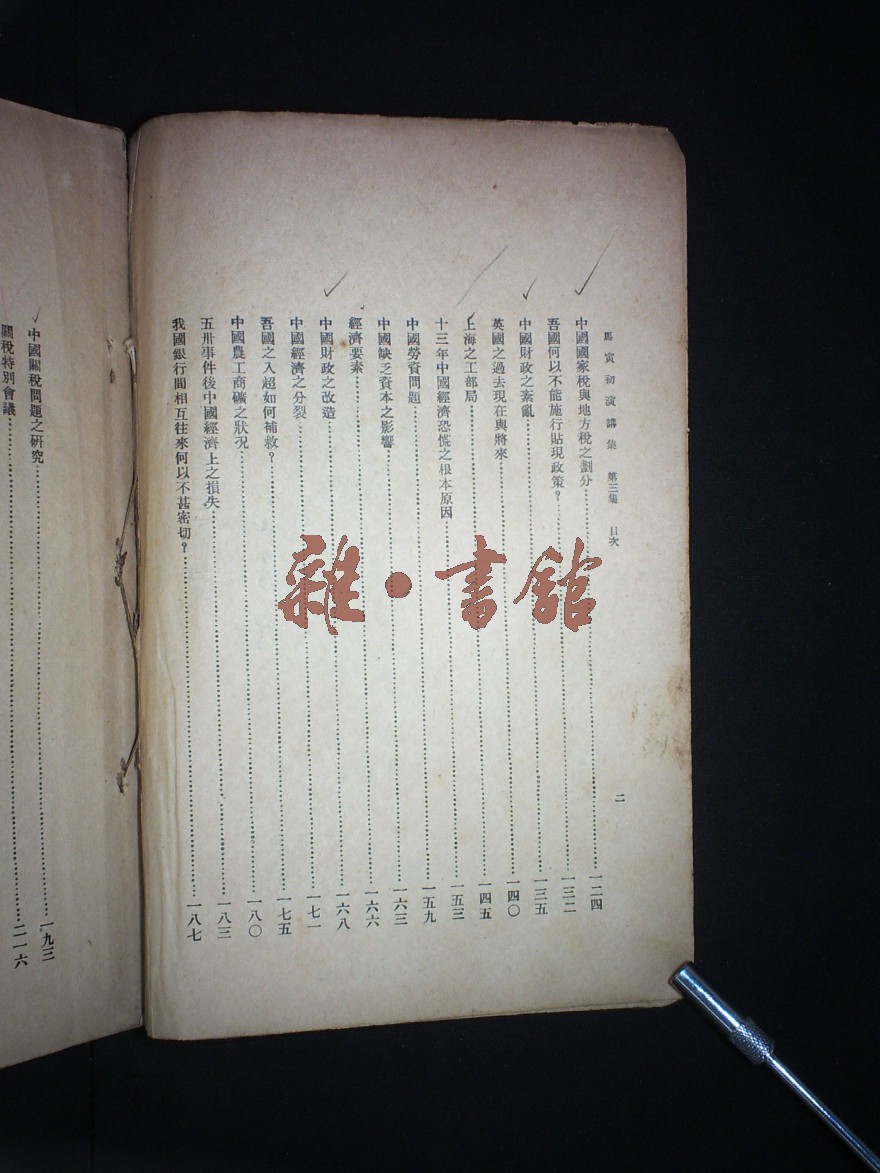 馬寅初演講集 第三集 目次
二
中國國家稅與地方稅之劃分……一二四
吾國何以不能施行貼現政策?……一三二
中國財政之紊亂……一三五
英國之過去現在與將來……一四〇
上海之工部局……一四五
十三年中國經濟恐慌之根本原因……一五三
中國勞資問題……一五九
中國缺乏資本之影響……一六三
經濟要素……一六六
中國財政之改造……一六八
中國經濟之分裂……一七一
吾國之入超如何補救?……一七五
中國農工商礦之狀况……一八〇
五卅事件後中國經濟上之損失……一八三
我國銀行間相互往來何以不甚密切?……一八七
中國關稅問題之研究……一九三
關稅特別會議……二一六
雜·書館